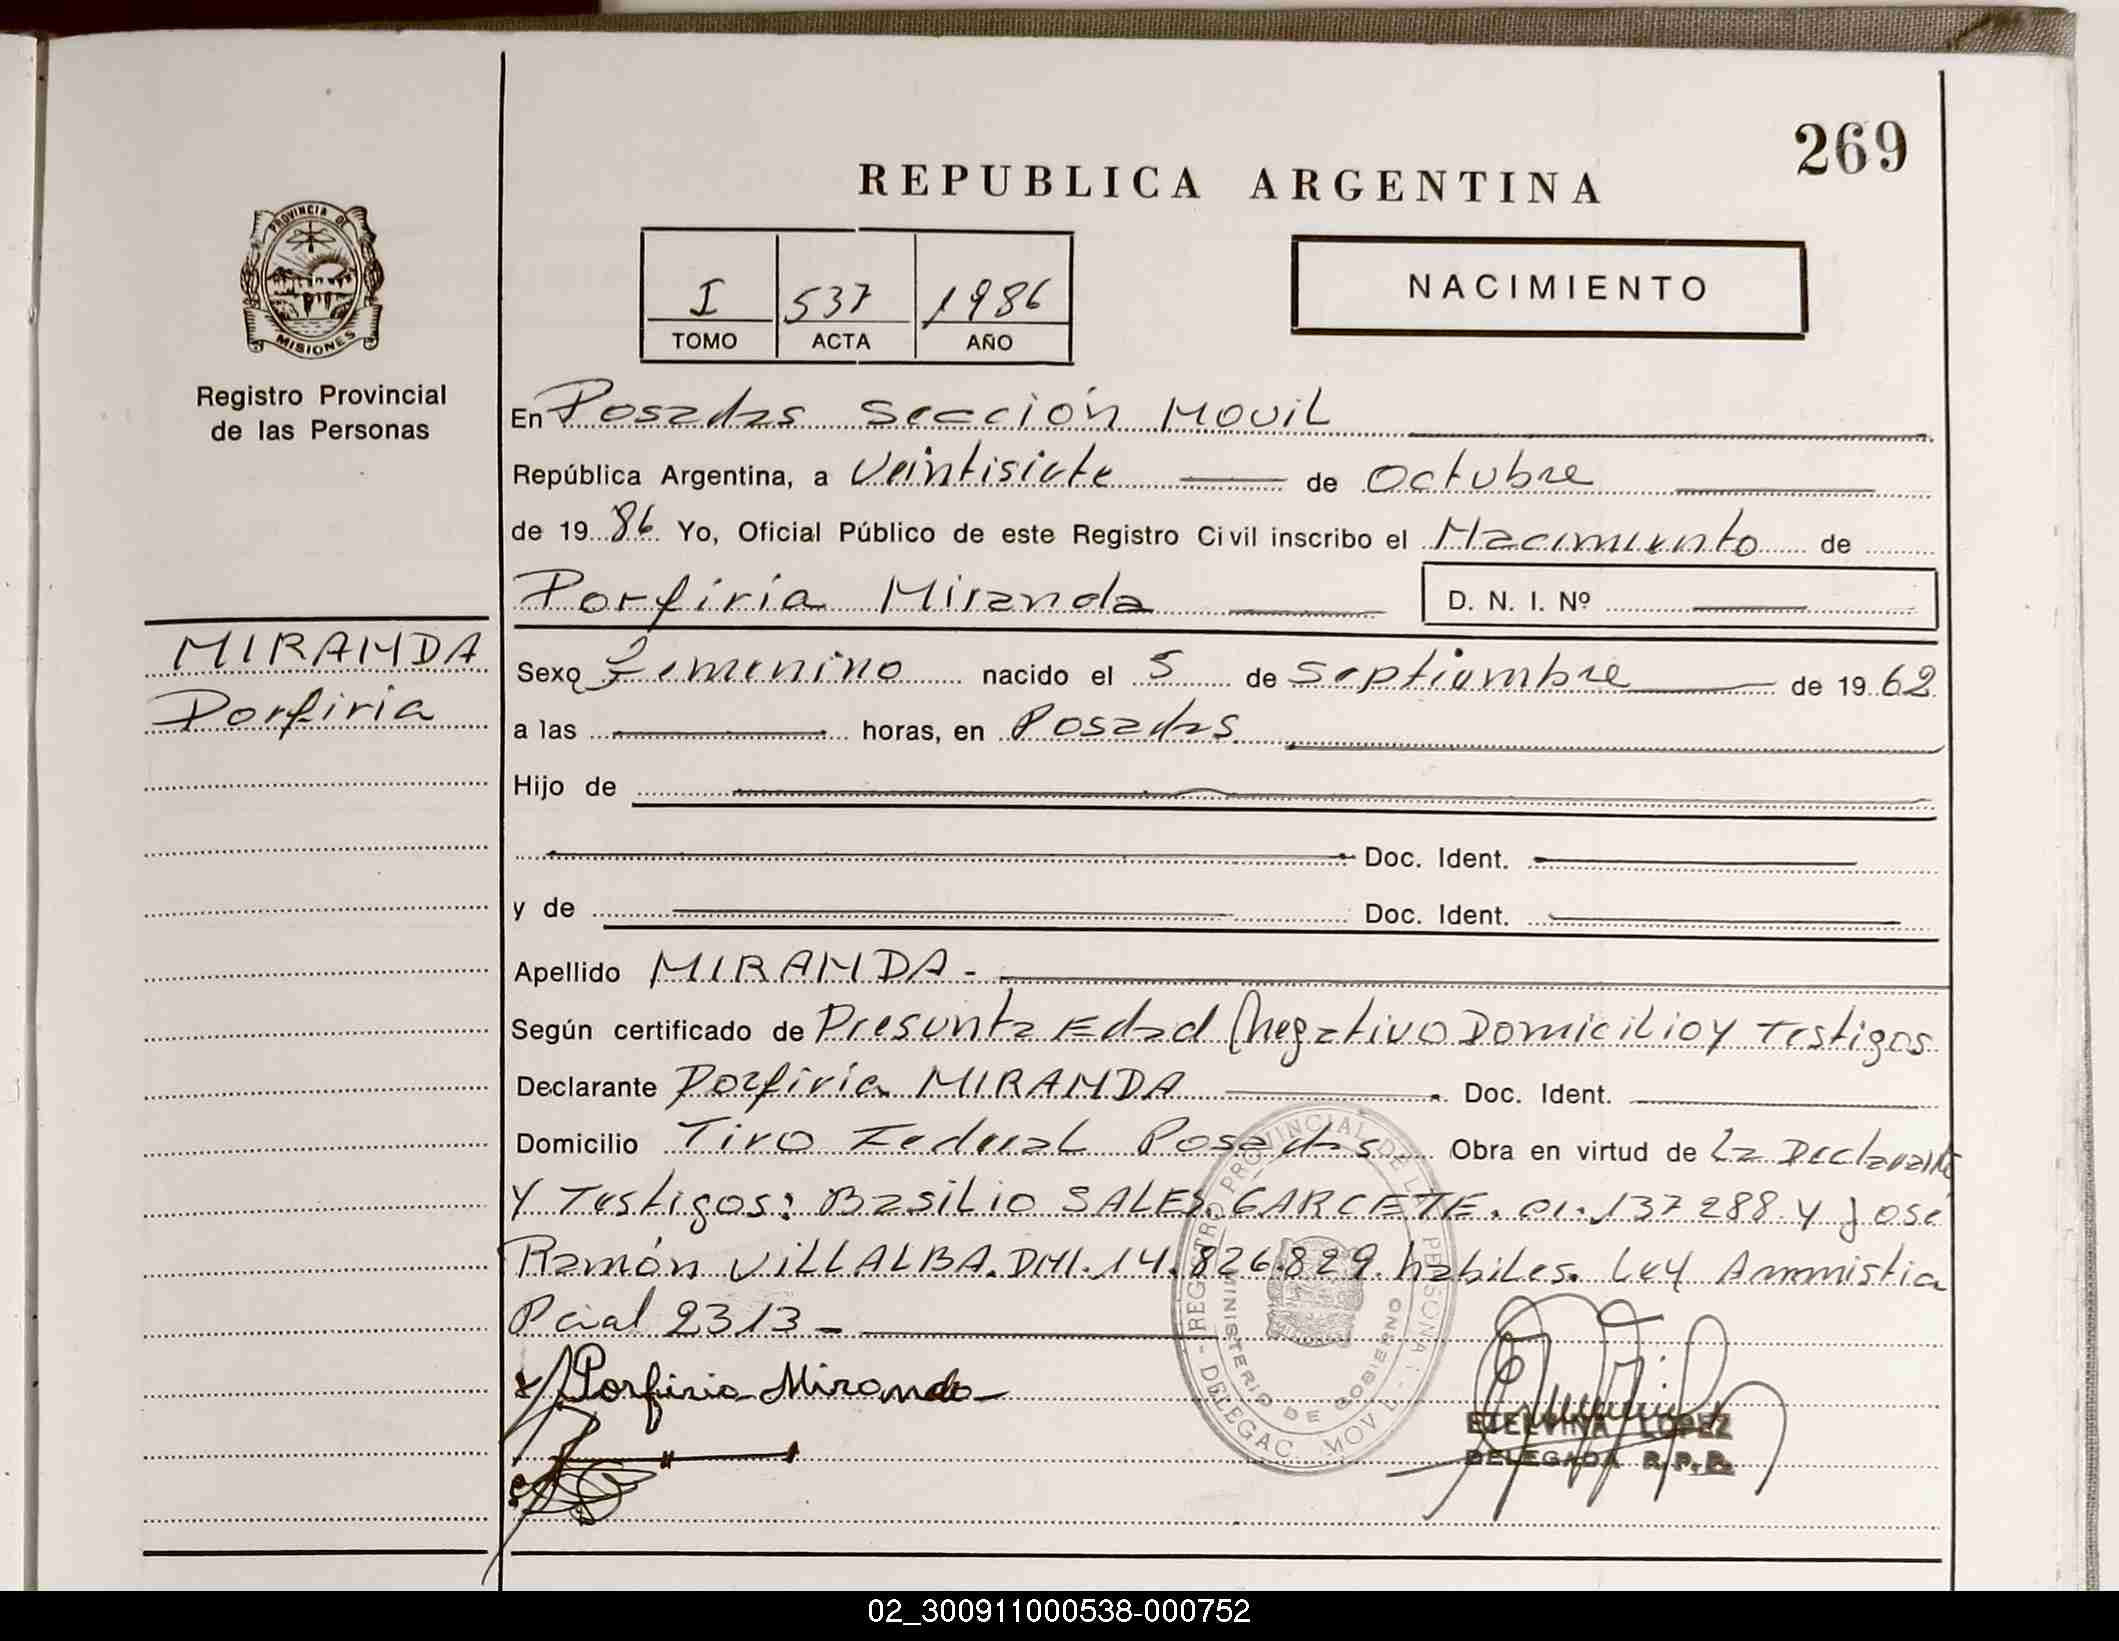 269
REPUBLICA ARGENTINA
PROVINCIA DE
MISIONES
Registro Provincial
de las Personas
I 537 1986
TOMO ACTA AÑO
NACIMIENTO
En Posadas Sección Movil
República Argentina, a Veintisiete de Octubre
de 19 86 Yo, Oficial Público de este Registro Civil inscribo el Nacimiento de
Porfiria Miranda D. N. I. Nº
MIRANDA
Porfiria
Sexo Femenino nacido el 5 de Septiembre de 19 62
a las horas, en Posadas
Hijo de
Doc. Ident.
y de Doc. Ident.
Apellido MIRANDA -
Según certificado de Presunta Edad Negativo Domicilio y Testigos
Declarante Porfiria MIRANDA Doc. Ident.
Domicilio Tiro Federal Posadas Obra en virtud de La Declarante
Y Testigos: Basilio SALES GARCETE. CI. 137288 y José
Ramón VILLALBA. DNI. 14.826.829. habiles. Ley Ammistia
Pcial 2313 -
Porfiria Miranda
- REGISTRO PROVINCIAL DE L PERSONA
DELEGAC. MOV
MINISTERIO DE GOBIERNO
ETELVINA LOPEZ
DELEGADA R.P.P.
02_300911000538-000752